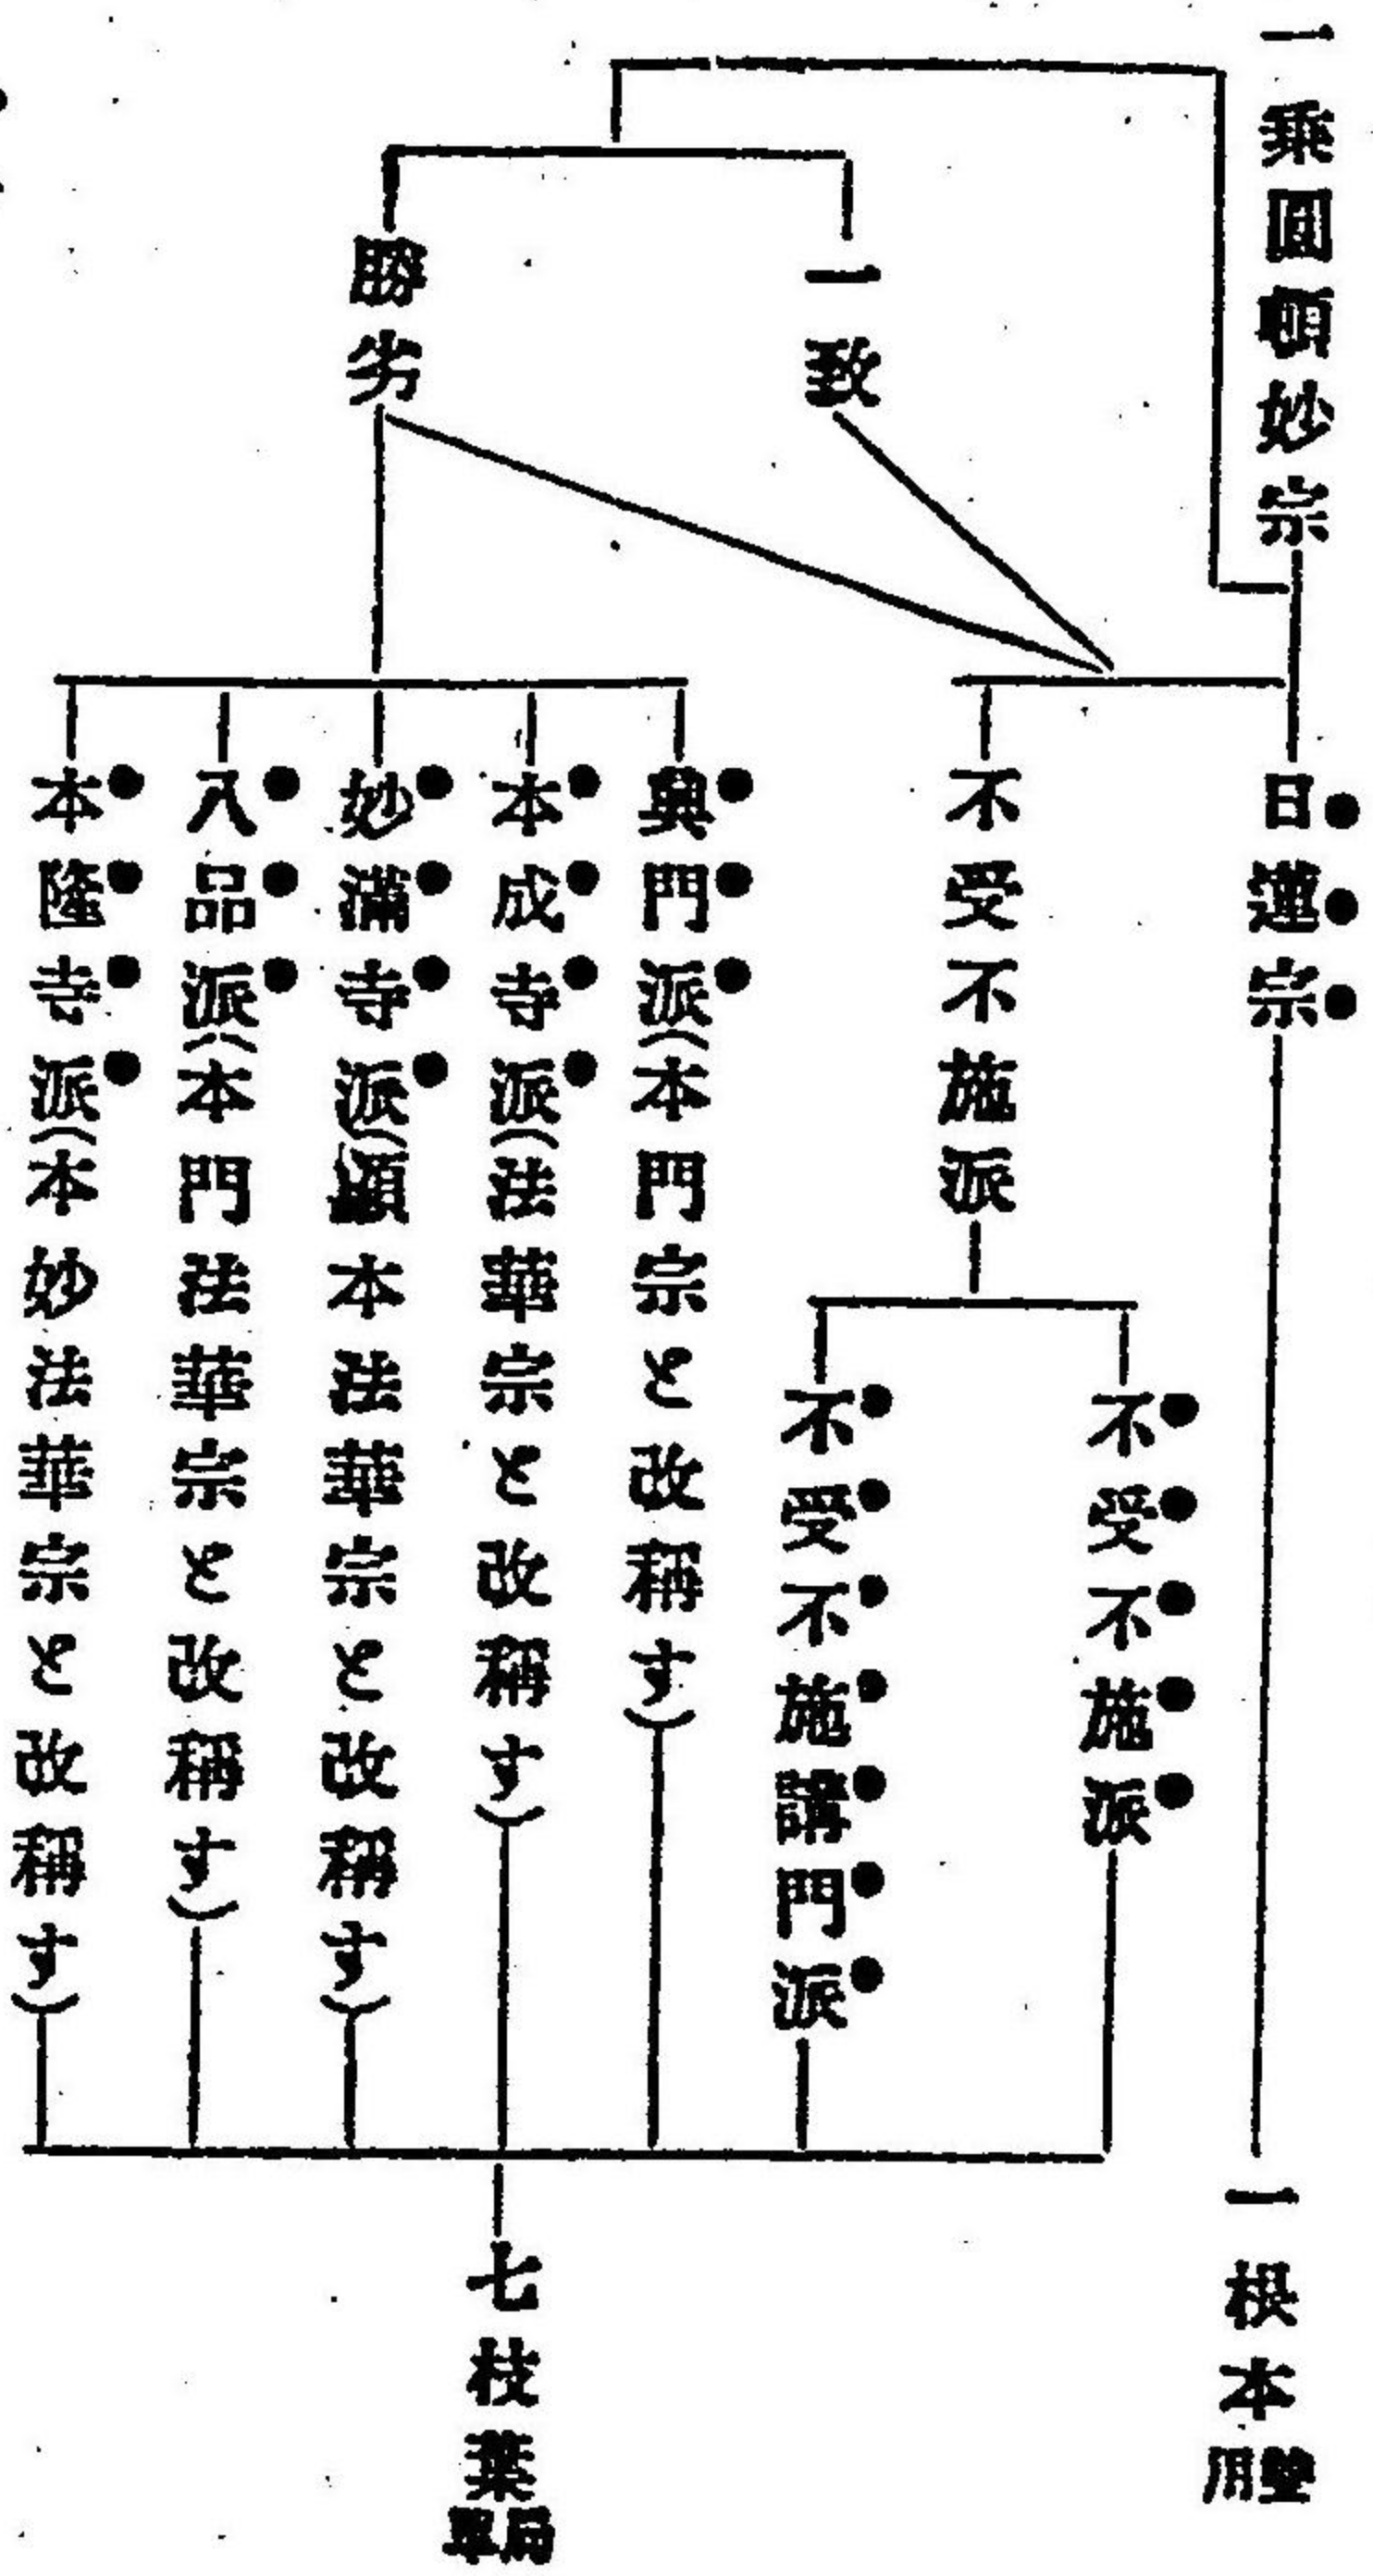 一乘圓頓妙宗
一致
勝劣
日蓮宗
不受不施派
不受不施派
不受不施講門派
興門派(本門宗と改稱す)
本成寺派(法華宗と改稱す)
妙滿寺派(顯本法華宗と改稱す)
八品派(本門法華宗と改稱す)
本隆寺派(本妙法華宗と改稱す)
一根本
七枝葉